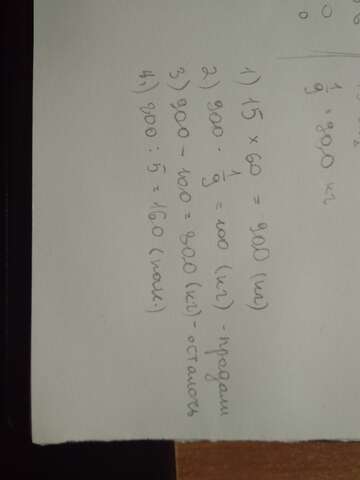 1
9 · 900 кг
1) 15 × 60 = 900 (кг)
2) 900 · 1/9 = 100 (кг) - продали
3) 900 - 100 = 800 (кг) - осталось
4) 800 : 5 = 160 (пак.)